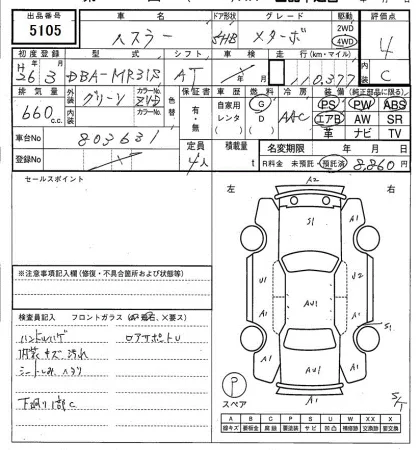 出品番号 車名 ドア形状 グレード 駆動 評価点
5105 ハスラー 5HB Xターボ 2WD 4WD 4
初度登録 型式 シフト 車検 走行(km・マイル) 内装
H26 3 DBA-MR31S AT 110,377 C
排気量 外装 カラーNo. 色替 保証書 車歴 燃料 冷房 装備(純正部品に限る)
660 c.c. グリーン ZVD 有・無 自家用 レンタ G D AAC PS PW ABS
内装 カラーNo. エアB AW SR
革 ナビ TV
車台No 803631 定員 4人 積載量 t 名変期限 年 月 日
登録No R料金 未預託・預託済 8,860円
セールスポイント
左 右
A2
S1
U1 J2
A1 AU1 A1
S1
A1 AU1 A1
A1
※注意事項記入欄(修復・不具合箇所および状態等)
検査員記入 フロントガラス
ハンドルハゲ ロアサポートU
内装キズ汚れ
シートしみ、ヘタリ
下廻り1部C
P
スペア
S/T
A B C P S U W X XX X
線キズ 要板金 腐蝕 要塗装 サビ 凹凸 補修跡 要交換 交換済 要交換